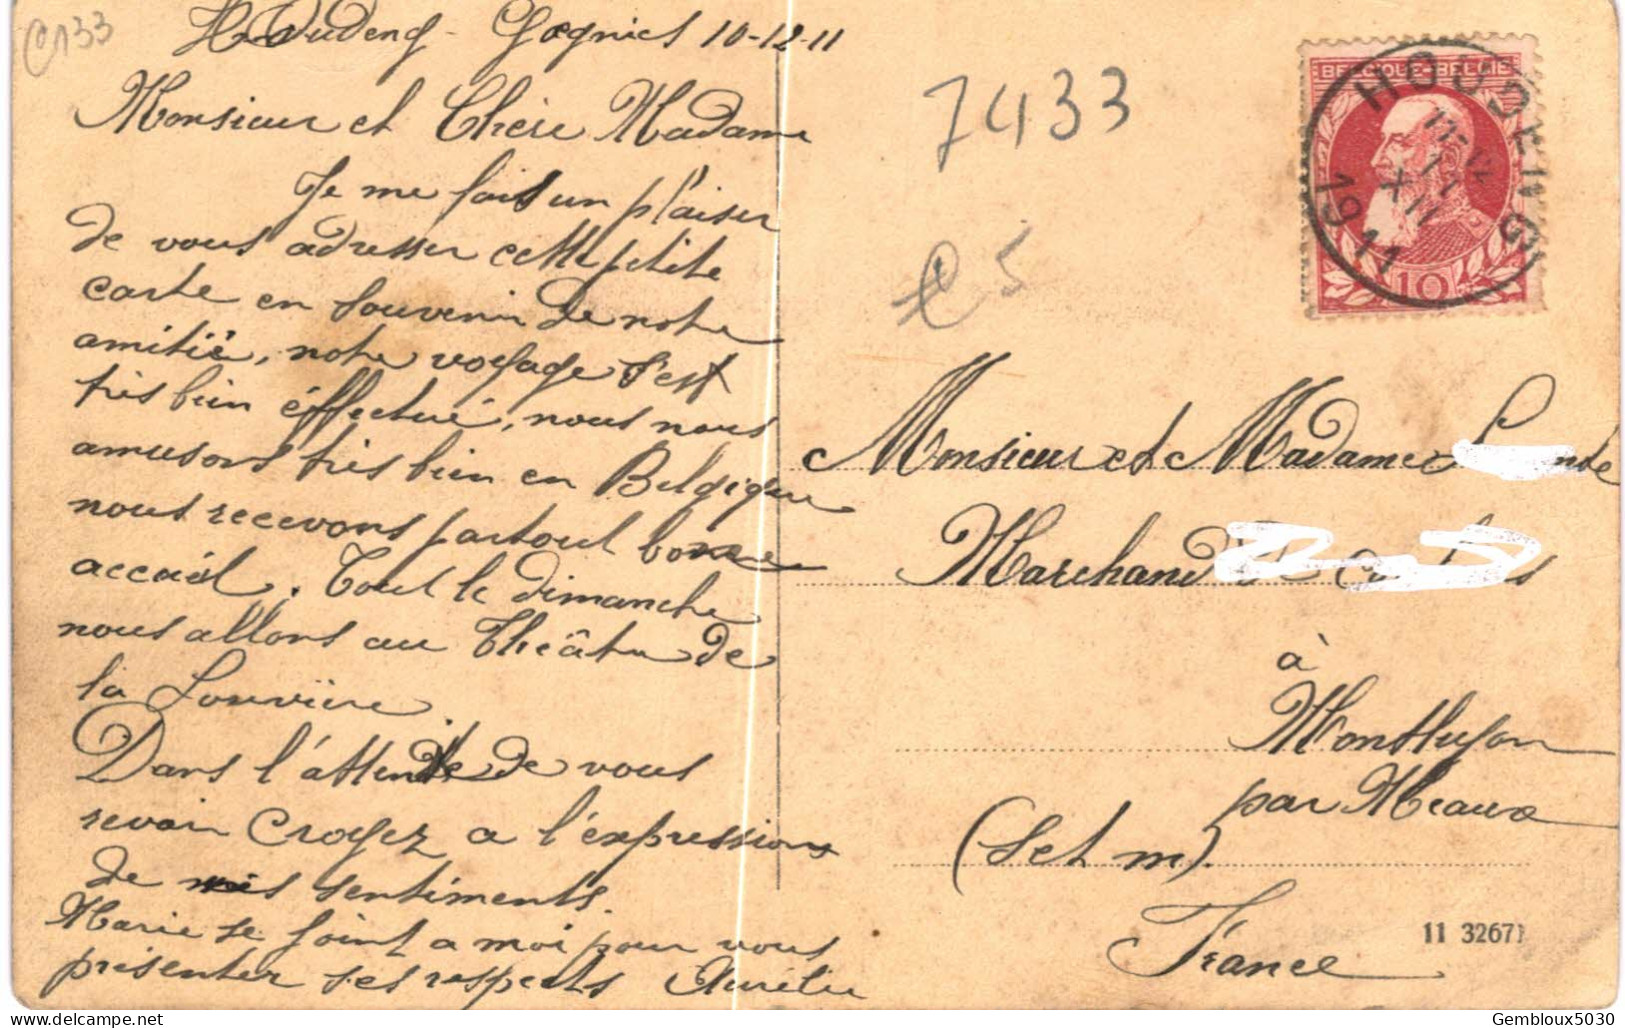 C133
Houdeng - Gœgnies 10-12-11
Monsieur et Chère Madame
Je me fais un plaisir
de vous adresser cette petite
carte en souvenir de notre
amitié, notre voyage s'est
très bien éffectué, nous nous
amusons très bien en Belgique
nous recevons partout bonne
accueil. Tout le dimanche
nous allons au Théâtre de
la Louvière.
Dans l'attente de vous
revoir Croyez a l'expression
de mes sentiments.
Marie se joint a moi pour vous
présenter ses respects Aurélie
7433
€5
BELGIQUE-BELGIE
HOUDENG
11
XII
1911
10
Monsieur et Madame
Marchand
à
Monthyon
par Meaux
(S et m).
France
11 32671
Gembloux5030